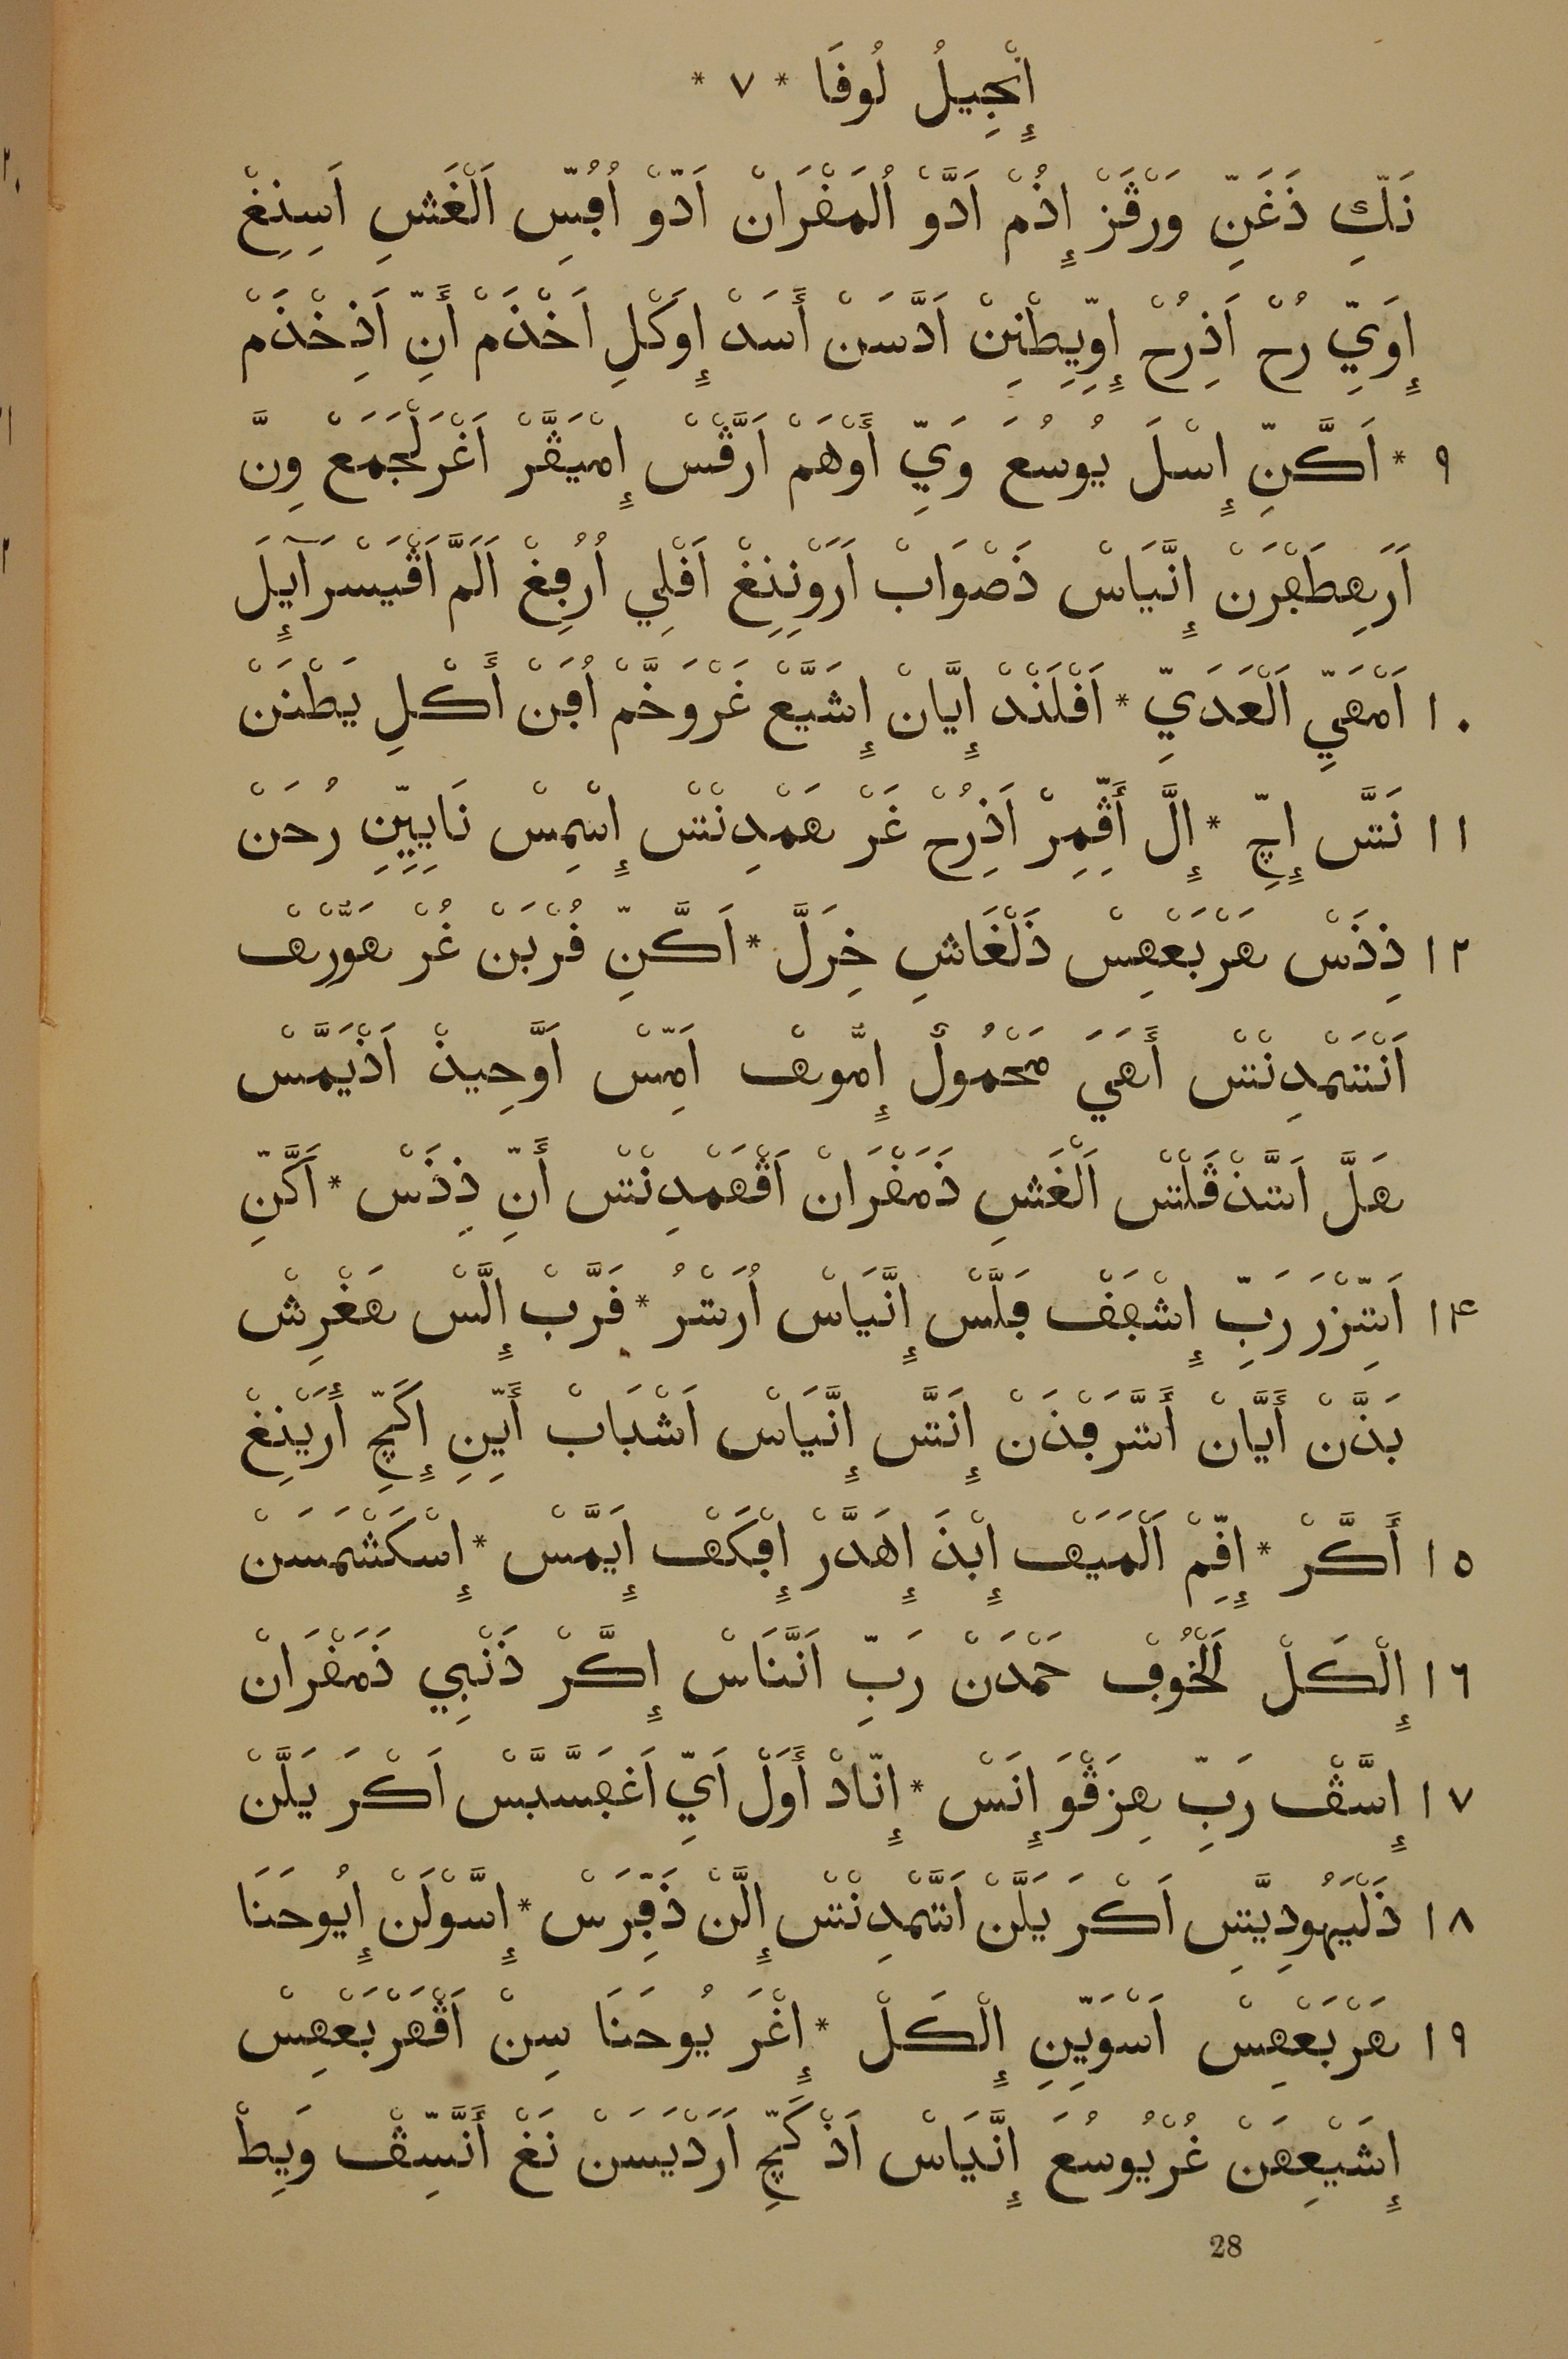 إِنْجِيلُ لُوقَا * ٧ *
نَكِّ ذَغَنِّ وَرْڤَزْ إِذُمْ اَدَّوْ اُلمَقْرَانْ اَدّوْ اُفُسِّ اَلْغَشِ اَسِنِغْ
إِوَيِّ رُحْ اَذِرُحْ إِوِّيِطْنِنْ اَدَّسَنْ أَسَدْ إِوَكْلِ اَخْذَمْ أَنِّ اَذِخْذَمْ
٩ * اَكَّنِّ إِسْلَ يُوسُعَ وَيِّ أَوْهَمْ اَرَّڤْسْ إِمْيَڤَّرْ اَغْرَلْجَمَعْ وِنَّ
اَرَهِطَفرَنْ إِنَّيَاسْ ذَصْوَابْ اَرَوْنِنِغْ اَفْلِي اُرُفِغْ اَلَمَّ اَڤْيَسْرَآيِلَ
١٠ اَمْهَيِّ اَلْعَدَيِّ * اَفْلَنْدْ إِيَّانْ إِشَيَّعْ غَرْوَخَّمْ اُفَنْ أَكْلِ يَطْنَنْ
١١ نَتَّس إِچِّ * إِلَّ أَڤِّمِرْ اَذِرُحْ غَرْ هَمْدِنْتْس إِسْمِسْ نَايِيِّنِ رُحَنْ
١٢ ذِذَسْ هَرْبَعْهِسْ ذَلْغَاشِ خِرَلَّ * اَكَّنِّ قُرْبَنْ غُرْ هَوُّرْهْ
اَنْتَتْمْدِنْتْس أَهَيَ مَحْمُولٌ إِمُّوهْ اَمِّسْ اَوَّحِيذْ اَذْيَمَّسْ
هَلَّ اَتَّذْڤَلْتْس اَلْغَشِ ذَمَقْرَانْ اَڤْهَمْدِنْتْس أَنِّ ذِذَسْ * اَكَّنِّ
١٤ اَتِّزْرَ رَبِّ إِشْفَقْ فَلَّسْ إِنَّيَاسْ اُرَتْرُ * قَرَّبْ إِلَّسْ هَغْرِشْ
بَدَّنْ أَيَّانْ أَتَّرَفْدَنْ إِنَتَّس إِنَّيَاسْ اَشْبَابْ أَيِّنِ إِكَچِّ أَرَيْنِغْ
١٥ أَكَّرْ * إِقِّمْ اَلْمَيَهْ إِبْذَ إِهَدَّرْ إِفْكَهْ إِيَمَّسْ * إِسْكَشْمَسَنْ
١٦ إِلْكَلْ لْخُوفْ حَمْدَنْ رَبِّ اَنَّنَاسْ إِكَّرْ ذَنْبِي ذَمَقْرَانْ
١٧ إِسَّڤْ رَبِّ هِزَڤْوَ إِنَسْ * إِنَّادْ أَوَلْ اَيِّ اَغَفسَّبَّسْ اَكْرَ يَلَّنْ
١٨ ذَلْيَهُودِيَّتِس اَكْرَ يَلَّنْ اَتَّمْدِنْتْس إِلَّنْ ذَقِّرَسْ * إِسَّوْلَنْ إِيُوحَنَا
١٩ هَرْبَعْهِسْ اَسْوَيِّنِ إِلْكَلْ * إِغْرَ يُوحَنَا سِنْ اَڤْهَرْبَعْهِسْ
إِشَيْعِهَنْ غُرْيُوسُعَ إِنَّيَاسْ اَذْكَچِّ اَرَدْيَسَنْ نَغْ أَنَّسِّڤْ وَيِطْ
28